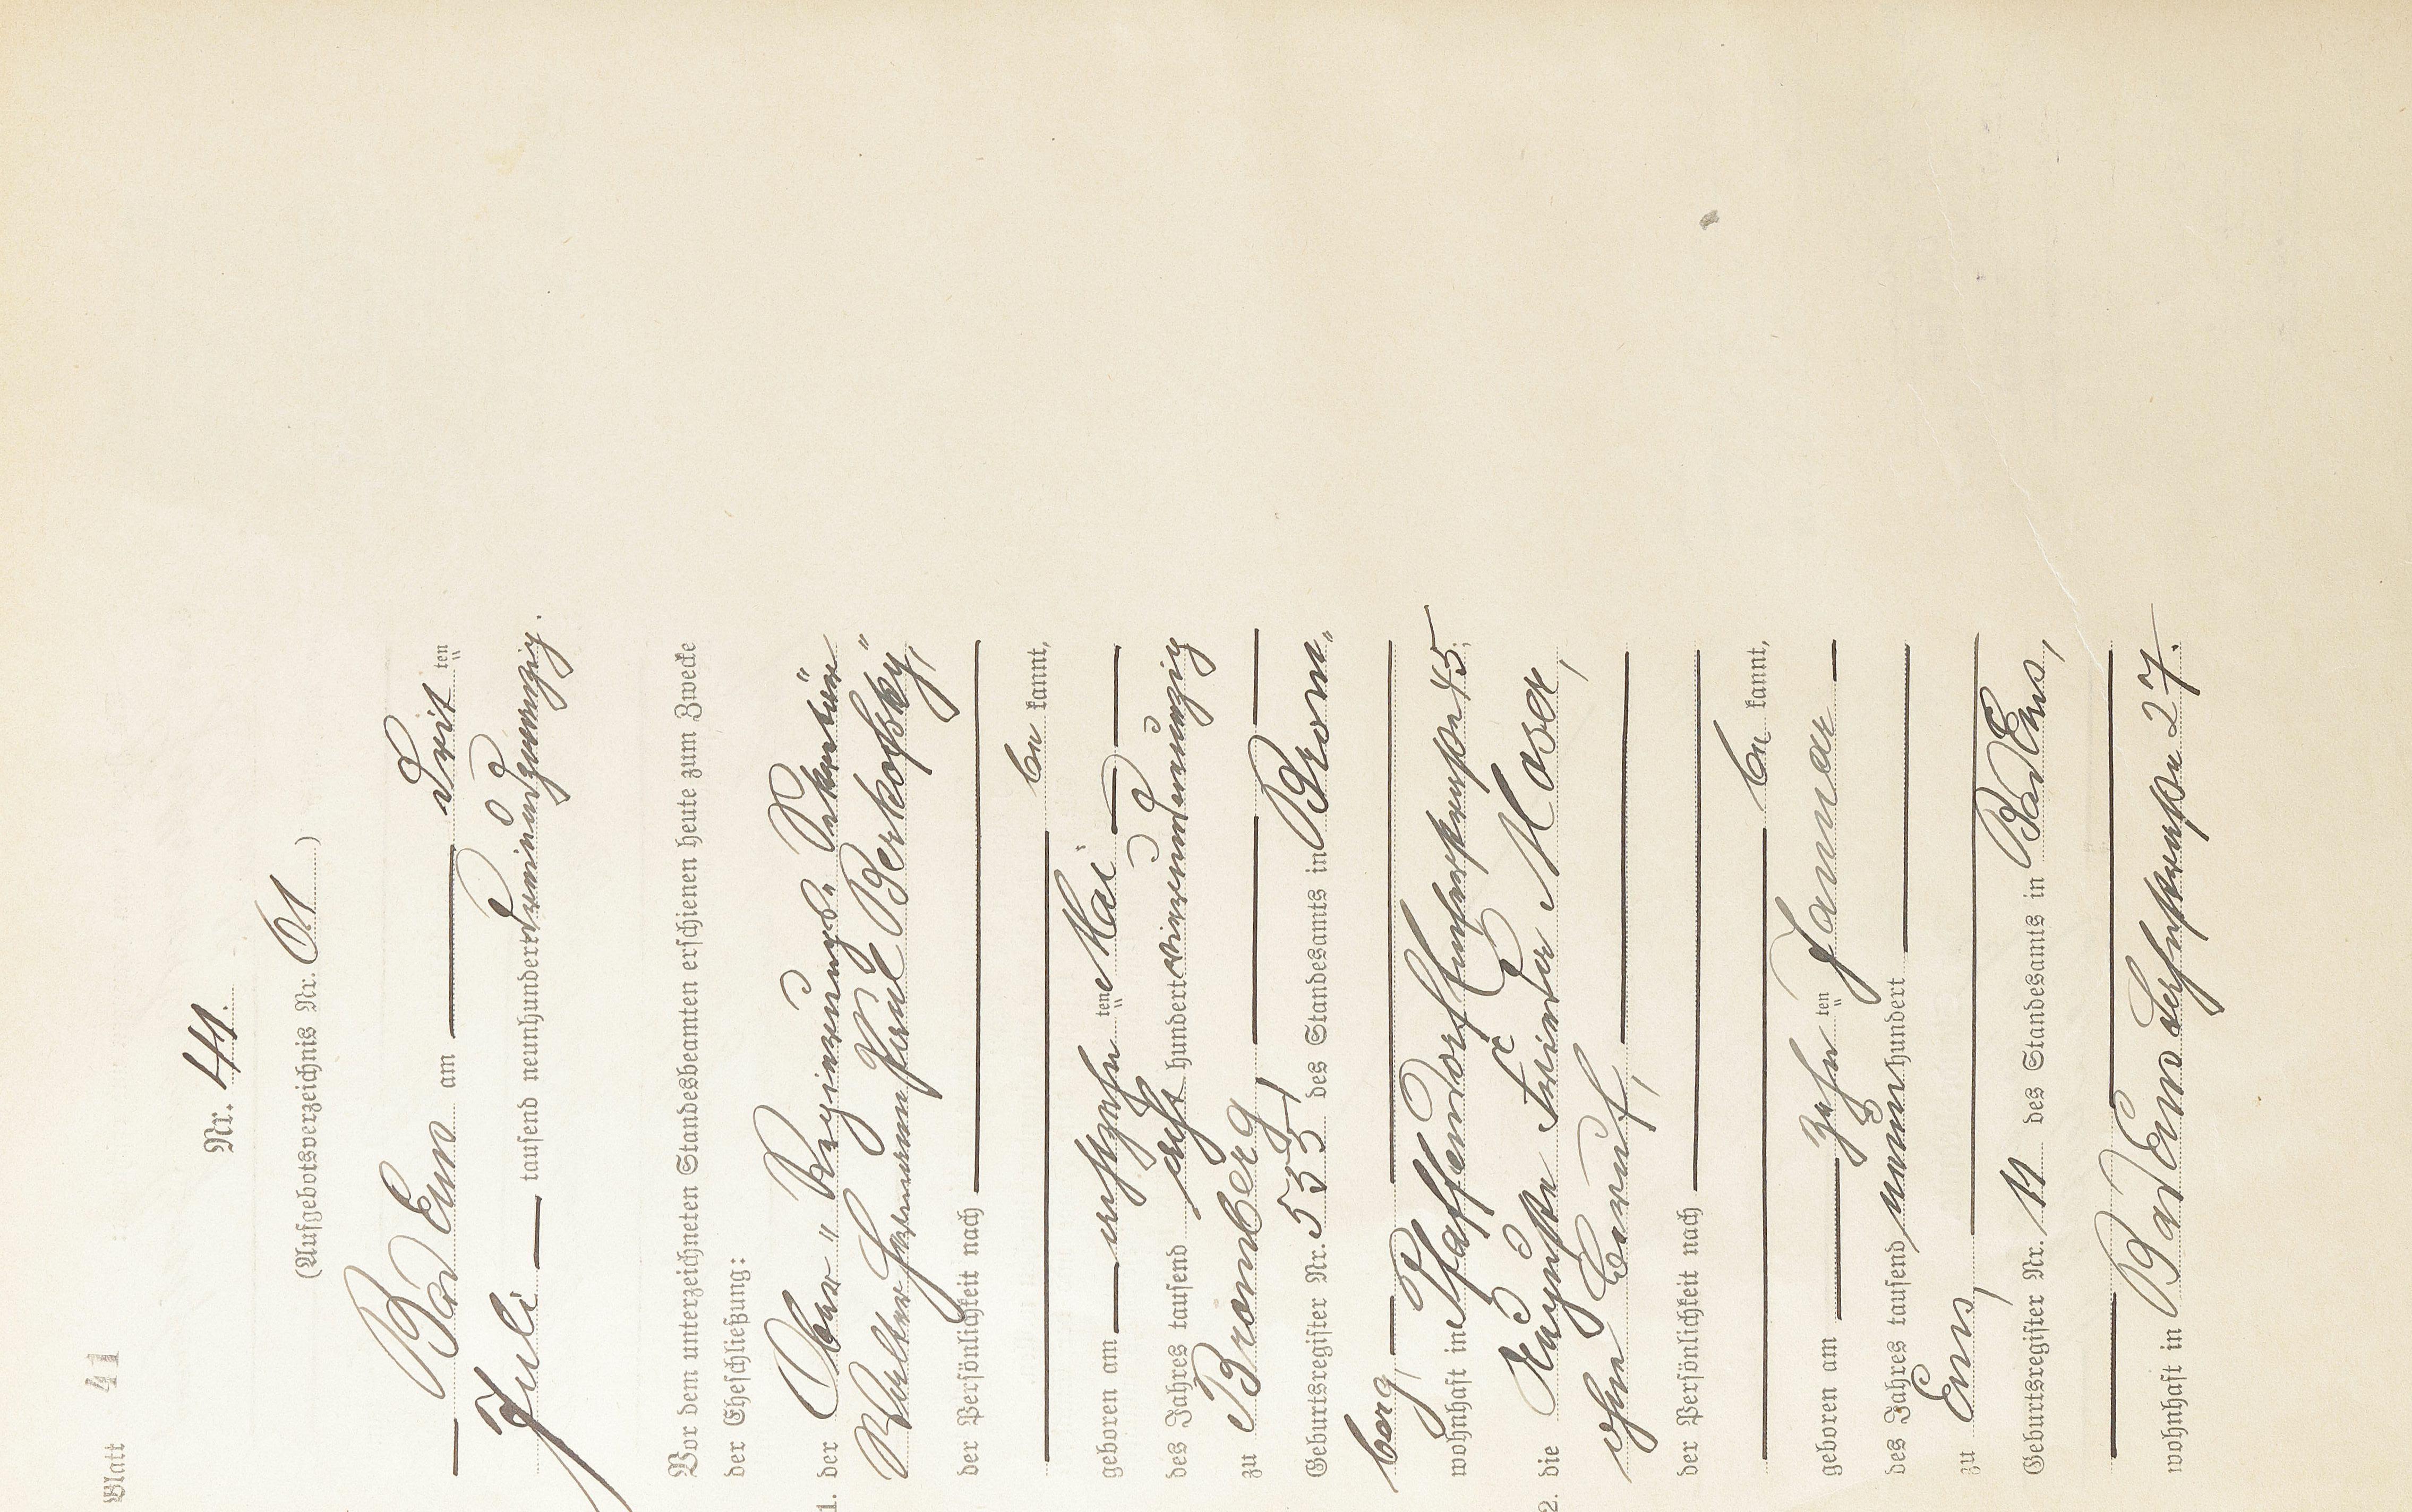 Blatt 41
Nr. 41.
(Aufgebotsverzeichnis Nr. 61)
Bad Ems am drit ten
Juli tausend neunhundert dreiundzwanzig.
Vor dem unterzeichneten Standesbeamten erschienen heute zum Zwecke
der Eheschließung:
1. der Ober-Regierungs-Sekretär
Walter Hermann Karl Berkofsky,
der Persönlichkeit nach
be kannt,
geboren am achtzehn ten Mai
des Jahres tausend acht hundert vierundneunzig
zu Bromberg,
Geburtsregister Nr. 535 des Standesamts in Brom-
berg,
wohnhaft in Pfaffendorf Emserstraße 45;
2. die Auguste Frieda Moser,
ohne Beruf,
der Persönlichkeit nach
be kannt,
geboren am zehn ten Januar
des Jahres tausend neun hundert
zu Ems,
Geburtsregister Nr. 11 des Standesamts in Bad Ems,
wohnhaft in Bad Ems Lahnstraße 27.